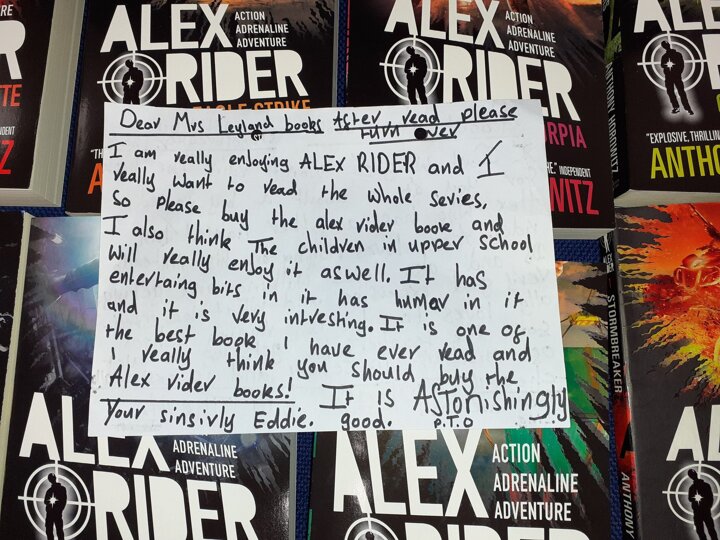 ALEX
RIDER
ACTION
ADRENALINE
ADVENTURE
EAGLE STRIKE
ALEX
RIDER
ACTION
ADRENALINE
ADVENTURE
SCORPIA
INDEPENDENT
"EXPLOSIVE, THRILLING
ANTHO
ANTHONY HOROWITZ
Dear Mrs Leyland books After read please
turn over
I am really enjoying ALEX RIDER and I
really want to read the whole series,
So please buy the alex rider book and
I also think The children in upper school
will really enjoy it aswell. It has
entertaing bits in it has humar in it
and it is very intresting. It is one of
the best book i have ever read and
i really think you should buy the
Alex rider books! It is Astonishingly
Your sinsivly Eddie. good. P.T.O
STORMBREAKER
ANTHONY
ALEX
RIDER
ADRENALINE
ADVENTURE
ALEX
RIDER
ACTION
ADRENALINE
ADVENTURE